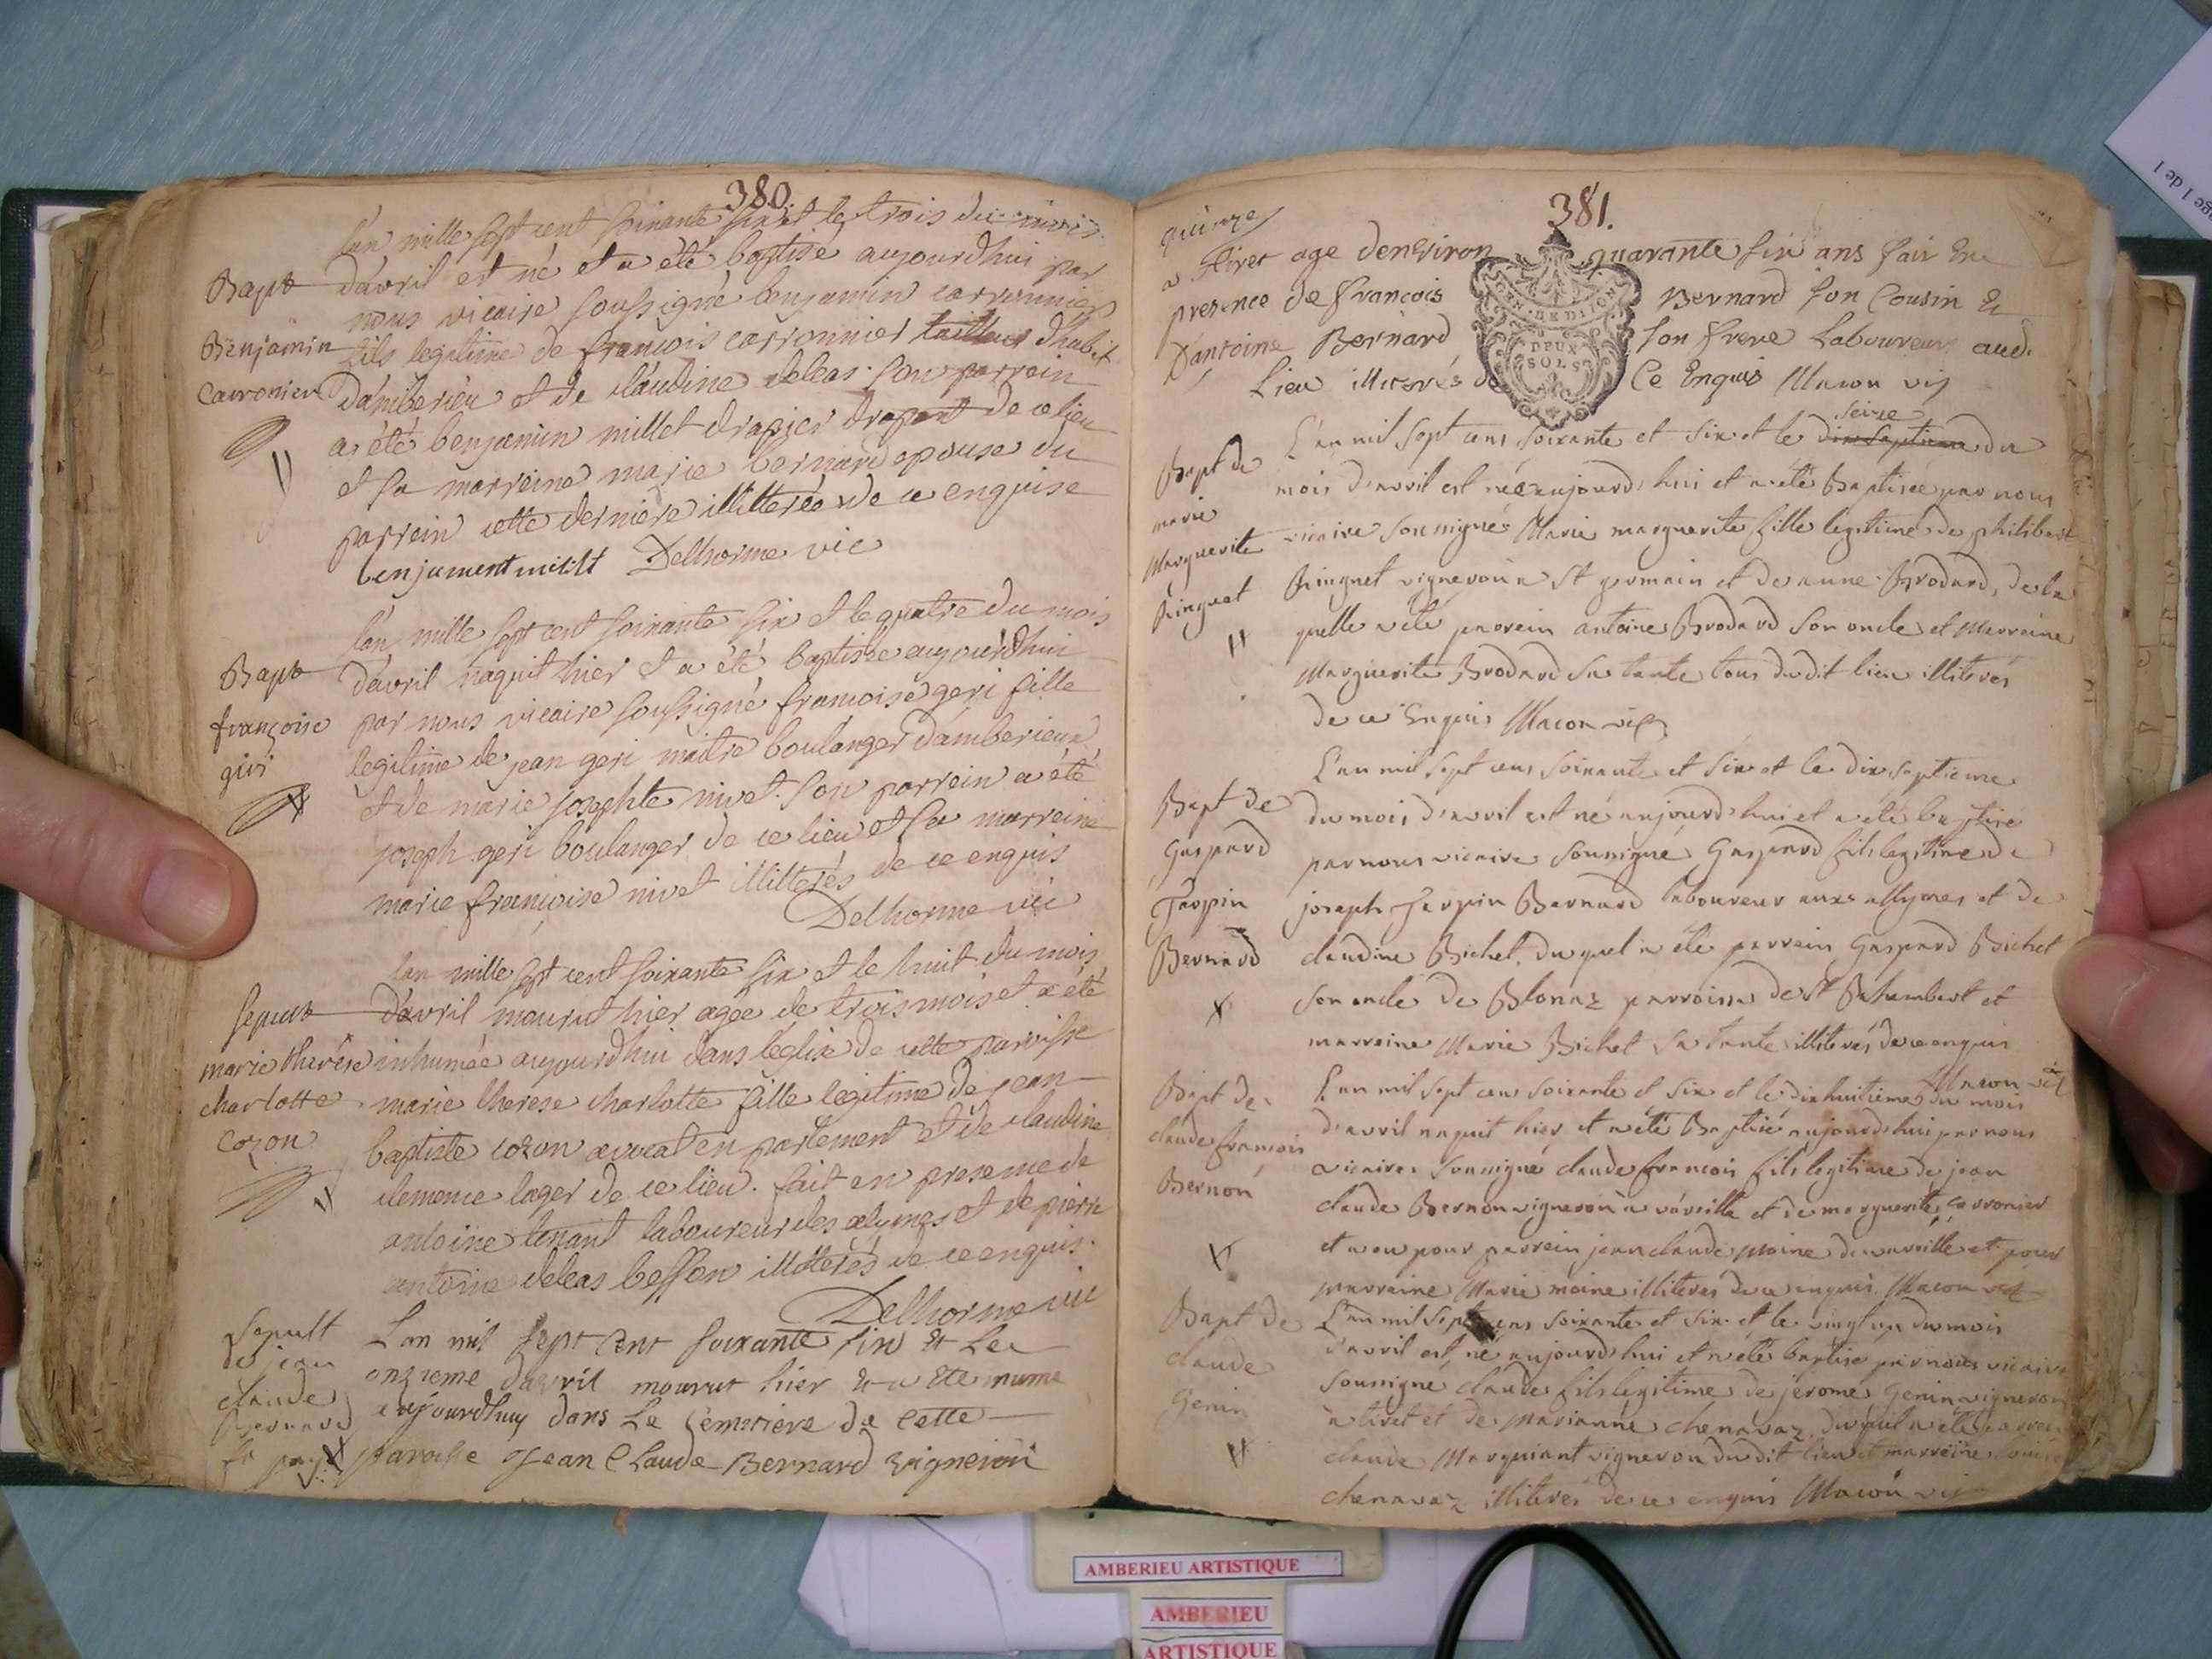 380.
l'an mille sept cent soixante six et le trois du mois
Bapt
d'avril est né et a été baptisé aujourdhui par
nous vicaire soussigné benjamin carronnier
Benjamin
fils legitime de françois carronnier tailleur d'habit
Carronier
d'amberieu et de claudine deleas. son parrein
a été benjamin millet drapier drapant de ce lieu
et sa marreine marie bernard epouse du
parrein cette derniere illitterée de ce enquise
benjument millt Delhorme vic
l'an mille sept cent soixante six et le quatre du mois
Bapt
d'avril naquit hier et a été baptisée aujourdhui
françoise
par nous vicaire soussigné francoise geri fille
giri
legitime de jean geri maitre boulanger d'amberieux
et de marie josephte nivet. son parrein a été
joseph geri boulanger de ce lieu et sa marreine
marie françoise nivet illitterés de ce enquis
Delhorme vic
l'an mille sept cent soixante six et le huit du mois
sepult
d'avril mourut hier agée de trois mois et a été
marie therése
inhumée aujourdhui dans leglise de cette paroisse
charlotte
marie therese charlotte fille legitime de jean
Cozon
baptiste cozon avocat en parlement et de claudine
clemence lager de ce lieu. fait en presence de
antoine tenant laboureur des alymes et de pierre
antoine deleas besson illitterés de ce enquis.
Delhorme vic
Sepult
L'an mil sept cent soixante six et Le
de jean
onzieme d'avril mourut hier et a ete inumé
claude
aujourdhuy dans Le Cemitiere de Cette
Bernard
paroisse Jean Claude Bernard Vigneron
381.
quinze
a Tiret age d'environ quarante six ans fait En
presence de francois Bernard son Cousin Et
D'antoine Bernard son frere Laboureurs aud.
Lieu illiterés de Ce Enquis Macon vic
seize
L'an mil sept cens soixante et six et le dix septieme du
Bapt de
mois d'avril est née aujourd'hui et a été Baptisée par nous
marie
Marguerite
vicaire soussigné Marie marguerite fille legitime de philibert
Ringuet
Ringuet vigneron a St germain et de anne Brodard, de la
quelle a été parrein antoine Brodard son oncle et Marreine
Marguerite Brodard sa tante tous dudit lieu illiterés
de ce Enquis Macon vic
L'an mil sept cens soixante et six et le dix septieme
Bapt de
du mois d'avril est né aujourd'hui et a été baptisé
Gaspard
par nous vicaire soussigné Gaspard fils legitime de
Jarpin
joseph Jarpin Bernard laboureur aux allymes et de
Bernard
claudine Bichet. du quel a été parrein Gaspard Bichet
son oncle de Blanaz parroisse de St Rahambert et
marreine Marie Bichet sa tante illiterés de ce enquis
Macon vic
Bapt de
L'an mil sept cens soixante et six et le dixhuitieme du mois
claude francois
d'avril naquit hier et a été Baptisé aujourd'hui par nous
vicaire soussigné claude francois fils legitime de jean
Bernon
claude Bernon vigneron a vareille et de marguerite carronier
et a eu pour parrein jean claude moine de vareille et pour
marraine Marie moine illiterés de ce enquis. Macon vic
Bapt de
L'an mil sept cens soixante et six et le vingt un du mois
claude
d'avril est né aujourd'hui et a été baptisé par nous vicaire
Genin
soussigné claude fils legitime de jerome Genin vigneron
a tiret et de Marianne chenavaz du quel a été parrein
claude Marquiant vigneron du dit lieu et marreine
chenavaz illiterés de ce enquis Macon vic
GEN
DEUX
SOLS
AMBERIEU ARTISTIQUE
AMBERIEU
ARTISTIQUE